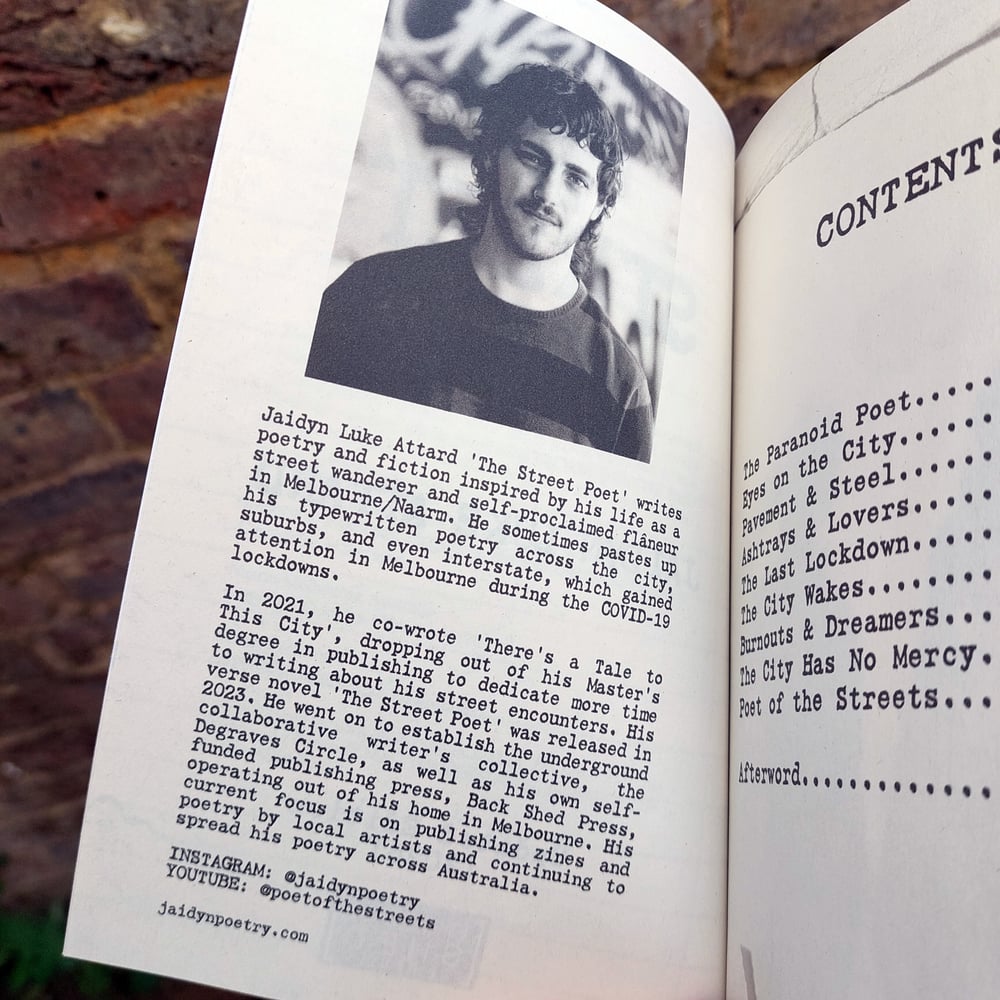 Jaidyn Luke Attard 'The Street Poet' writes
poetry and fiction inspired by his life as a
street wanderer and self-proclaimed flâneur
in Melbourne/Naarm. He sometimes pastes up
his typewritten poetry across the city,
suburbs, and even interstate, which gained
attention in Melbourne during the COVID-19
lockdowns.
In 2021, he co-wrote 'There's a Tale to
This City', dropping out of his Master's
degree in publishing to dedicate more time
to writing about his street encounters. His
verse novel 'The Street Poet' was released in
2023. He went on to establish the underground
collaborative writer's collective, the
Degraves Circle, as well as his own self-
funded publishing press, Back Shed Press,
operating out of his home in Melbourne. His
current focus is on publishing zines and
poetry by local artists and continuing to
spread his poetry across Australia.
INSTAGRAM: @jaidynpoetry
YOUTUBE: @poetofthestreets
jaidynpoetry.com
CONTENTS
The Paranoid Poet.....
Eyes on the City......
Pavement & Steel......
Ashtrays & Lovers.....
The Last Lockdown.....
The City Wakes........
Burnouts & Dreamers...
The City Has No Mercy.
Poet of the Streets...
Afterword.............